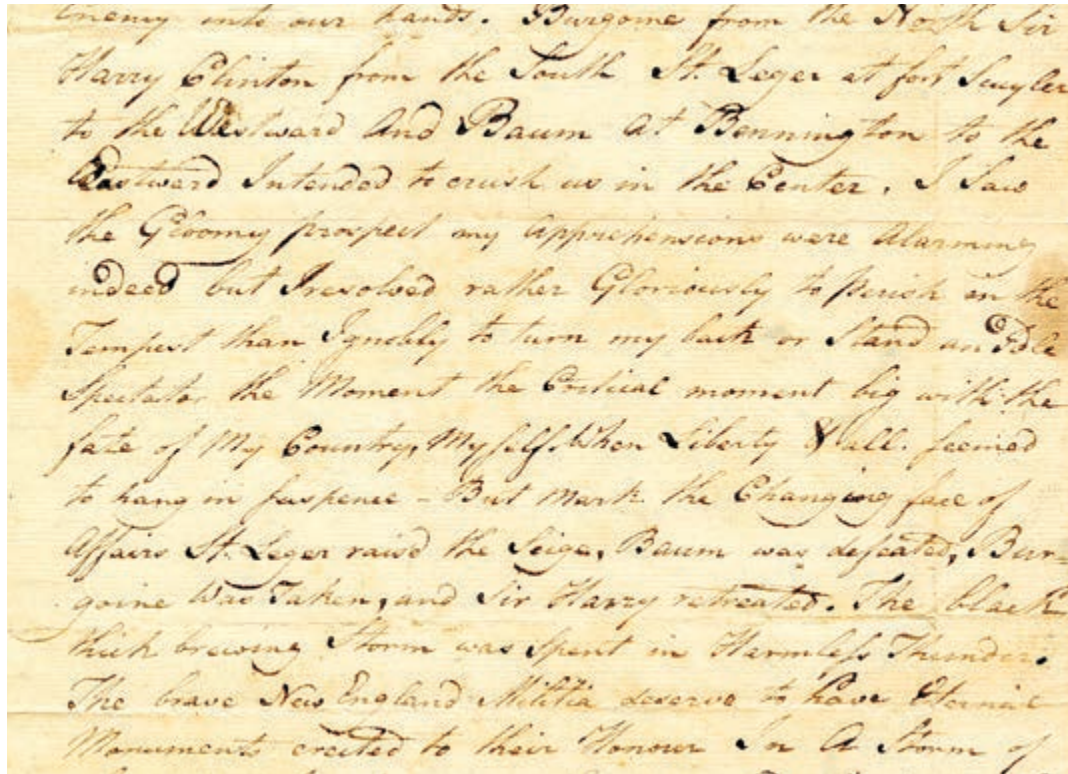 Enemy into our hands. Burgoine from the North Sir
Harry Clinton from the South St. Leger at fort Scuyler
to the Westward And Baum at Bennington to the
Eastward Intended to crush us in the Center. I Saw
the Gloomy prospect my apprehensions were Alarming
indeed but I resolved rather Gloriously to perish in the
Tempest than Ignobly to turn my back or Stand an Idle
Spectator the Moment the Critical moment big with the
fate of My Country, My self When Liberty & all. seemed
to hang in suspence - But mark the Changing face of
Affairs St. Leger raisd the Seige, Baum was defeated, Bur-
goine Was Taken, and Sir Harry retreated. The black
thick brewing Storm was Spent in Harmless Thunder.
The brave New England Militia deserve to have Eternal
Monuments erected to their Honour In A Storm of